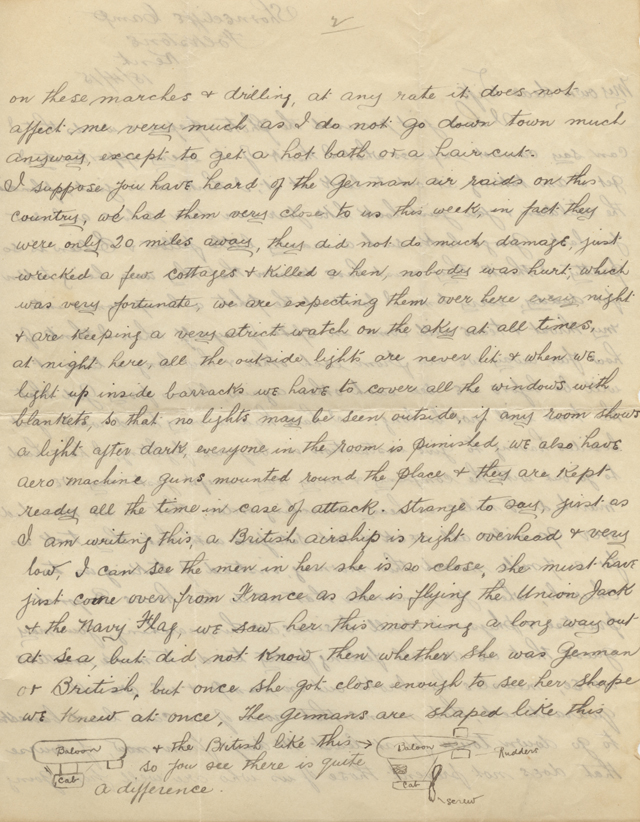 2
on these marches & drilling, at any rate it does not
affect me very much as I do not go down town much
anyway, except to get a hot bath or a hair cut.
I suppose you have heard of the German air raids on this
country, we had them very close to us this week, in fact they
were only 20 miles away, they did not do much damage, just
wrecked a few cottages & killed a hen, nobody was hurt, which
was very fortunate, we are expecting them over here every night
& are keeping a very strict watch on the sky at all times,
at night here, all the outside lights are never lit & when we
light up inside barracks we have to cover all the windows with
blankets, so that no lights may be seen outside, if any room shows
a light after dark, everyone in the room is punished, we also have
aero machine guns mounted round the place & they are kept
ready all the time in case of attack. Strange to say, just as
I am writing this, a British airship is right overhead & very
low, I can see the men in her she is so close, she must have
just come over from France as she is flying the Union Jack
& the Navy Flag, we saw her this morning a long way out
at sea, but did not know then whether she was German
or British, but once she got close enough to see her shape
we knew at once, The Germans are shaped like this
Baloon
Car
& the British like this
so you see there is quite
a difference.
Baloon
Rudders
Car
screw